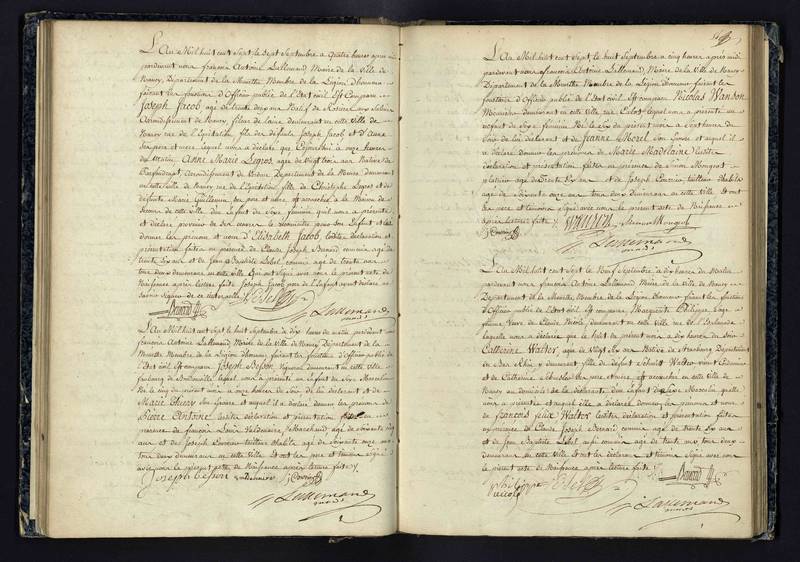 L'An Mil huit cent Sept le Sept Septembre a quatre heures après midi
pardevant nous françois Antoine Lallemand Maire de la Ville de
Nancy, Département de la Meurthe Membre de la Légion d'honneur
faisant les fonctions d'Officier public de l'Etat civil Est Comparu
Joseph Jacob agé de trente deux ans Natif de
Arrondissement de Nancy, fileur de laine demeurant en cette Ville de
Nancy rue de l'Equitation fils de défunts Joseph Jacob et d'Anne
lequel nous a déclaré que Aujourd'hui à onze heures
du Matin, Anne Marie Legros, agée de vingt trois ans Native de
Arrondissement de Verdun Département de la Meuse demeurant
en cette Ville de Nancy rue de l'Equitation fille de Christophe Legros et de
défunte Marie Guillaume, ses pere et mere, est accouchée à la Maison de
Secours de cette ville d'un Enfant du Sexe féminin, qu'il nous a présenté
et déclaré provenir de ses œuvres le reconnoitre pour son Enfant et lui
donner les prénom et nom d'Elisabeth Jacob, lesdites déclaration et
présentation faites en présence de Claude Joseph Bernard commis agé de
trente six ans et de Jean Baptiste Lebel commis agé de trente un
tous deux demeurans en cette Ville Qui ont signé avec nous le présent acte de
Naissance après lecture faite, Joseph Jacob pere de l'Enfant ayant déclaré ne
savoir signer de ce interpellé
Lebel
Bernard
Lallemand
L'An Mil huit cent Sept le huit Septembre à dix heures du matin pardevant nous
françois Antoine Lallemand Maire de la Ville de Nancy Département de la
Meurthe Membre de la Légion d'honneur faisant les fonctions d'Officier public de
l'Etat civil Est comparu Joseph Besson Vigneron demeurant en cette ville
faubourg de lequel nous a présenté un Enfant du Sexe Masculin
Né le cinq du présent mois à onze heures du Soir de lui déclarant et de
Marie Thiery son Epouse et auquel il a déclaré donner les prénoms de
Pierre Antoine lesdites déclaration et présentation faites en
présence de françois Louis Valdenaire, agé de soixante cinq
ans et de Joseph tailleur d'habits agé de Soixante onze ans
tous deux demeurans en cette Ville Et ont les pere et témoins signé
avec nous le présent acte de Naissance après lecture faite
Joseph besson
Lallemand
L'An Mil huit cent Sept le huit Septembre à cinq heures après midi
pardevant nous françois Antoine Lallemand Maire de la Ville de Nancy
Département de la Meurthe Membre de la Légion d'honneur faisant les
fonctions d'Officier public de l'Etat civil Est comparu Nicolas Wanson
demeurant en cette Ville rue lequel nous a présenté un
Enfant du Sexe féminin Né le Six du présent mois à sept heures du
Soir de lui déclarant et de Jeanne Morel son Epouse et auquel il
a déclaré donner les prénoms de Marie Madelaine lesdites
déclaration et présentation faites en présence de Simon Mougeot
platrier agé de Trente Six ans et de Joseph tailleur d'habits
agé de Soixante onze ans tous deux demeurans en cette Ville Et ont
les pere et témoins signé avec nous le présent acte de Naissance
après lecture faite
Lallemand
L'An Mil huit cent Sept le Neuf Septembre à dix heures du Matin
pardevant nous françois Antoine Lallemand Maire de la Ville de Nancy
Département de la Meurthe, Membre de la Légion d'honneur faisant les fonctions
d'Officier public de l'Etat civil Est comparue, Marguerite Philippe Sage
femme Veuve de Claude Nicole demeurant en cette Ville rue de
laquelle nous a déclaré que le huit du présent mois à dix heures du Soir
Catherine Walter, agée de Vingt Six ans Native de Strasbourg Département
du Bas Rhin y demeurant fille de défunt Schmitt Walter vivant
et de Catherine ses pere et mere, est accouchée en cette Ville de
Nancy au domicile de la déclarante d'un Enfant du Sexe Masculin qu'elle
nous a présenté et auquel elle a déclaré donner les prénoms et nom
de françois felix Walter lesdites déclaration et présentation faites
en présence de Claude Joseph Bernard commis agé de trente Six ans
et de Jean Baptiste Lebel aussi commis agé de trente un ans tous deux
demeurans en cette Ville Et ont les déclarante et témoins signé avec nous
le présent acte de Naissance après lecture faite
Philippe
nicole
Lebel
Bernard
Lallemand